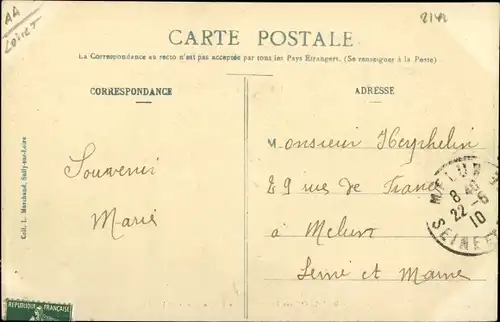 AA
Loiret
CARTE POSTALE
La Correspondance au recto n'est pas acceptée par tous les Pays Étrangers. (Se renseigner à la Poste)
CORRESPONDANCE
ADRESSE
Coll. L. Marchand, Sully-sur-Loire
Souvenir
Marie
Monsieur
29 rue de France
à Melun
Seine et Marne
MELUN
8
22 -6
10
SEINE ET
REPUBLIQUE FRANÇAISE